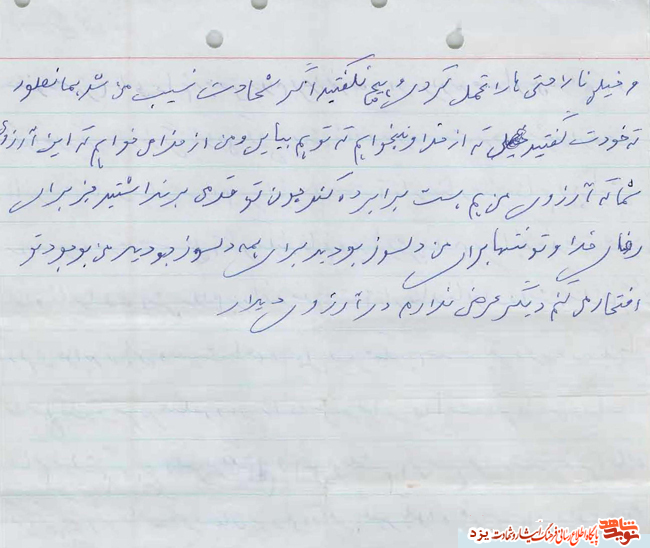 و خیلی ناراحتی ها را تحمل کردی و هیچ نگفتید اگر شهادت نصیب من شد همانطور
که خودت گفتید که از خدا میخواهم که تو هم بیایی و من از خدا می خواهم که این آرزوی
شما که آرزوی من هم هست برابرده کند چون تو قدمی برنداشتید جز برای
رضای خدا و تو نتنها برای من دلسوز بودید برای همه دلسوز بودید من بوجود تو
افتخار می کنم دیگر عرضی ندارم در آرزوی دیدار
نوید شاهد
پایگاه اطلاع رسانی فرهنگ ایثار و شهادت یزد